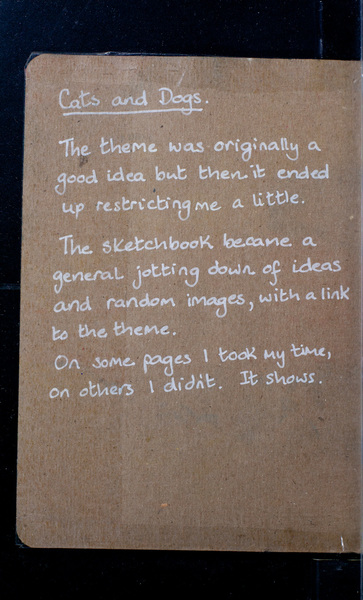 Cats and Dogs.
The theme was originally a
good idea but then it ended
up restricting me a little.
The sketchbook became a
general jotting down of ideas
and random images, with a link
to the theme.
On some pages I took my time,
on others I didn't. It shows.